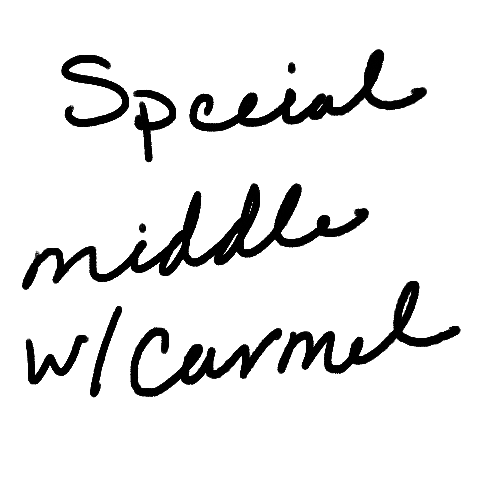 Spceial
middle
w/ Carmel